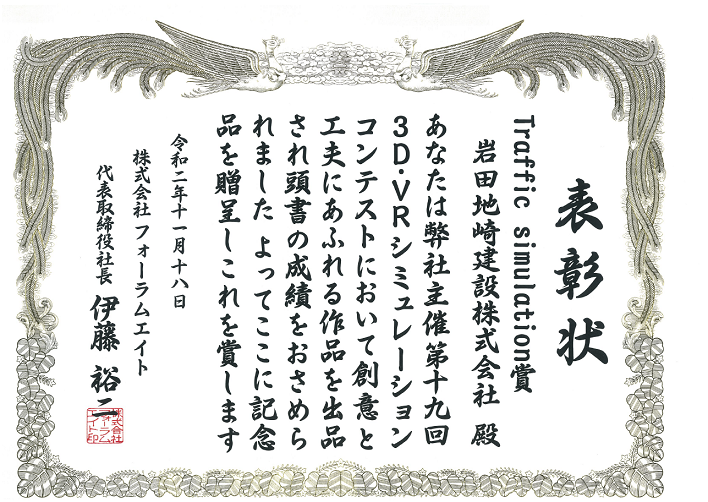 表彰状
Traffic simulation賞
岩田地崎建設株式会社 殿
あなたは弊社主催第十九回
3D・VRシミュレーション
コンテストにおいて創意と
工夫にあふれる作品を出品
され頭書の成績をおさめら
れました よってここに記念
品を贈呈しこれを賞します
令和二年十一月十八日
株式会社フォーラムエイト
代表取締役社長 伊藤 裕二
株式会社
フォーラム
エイト印